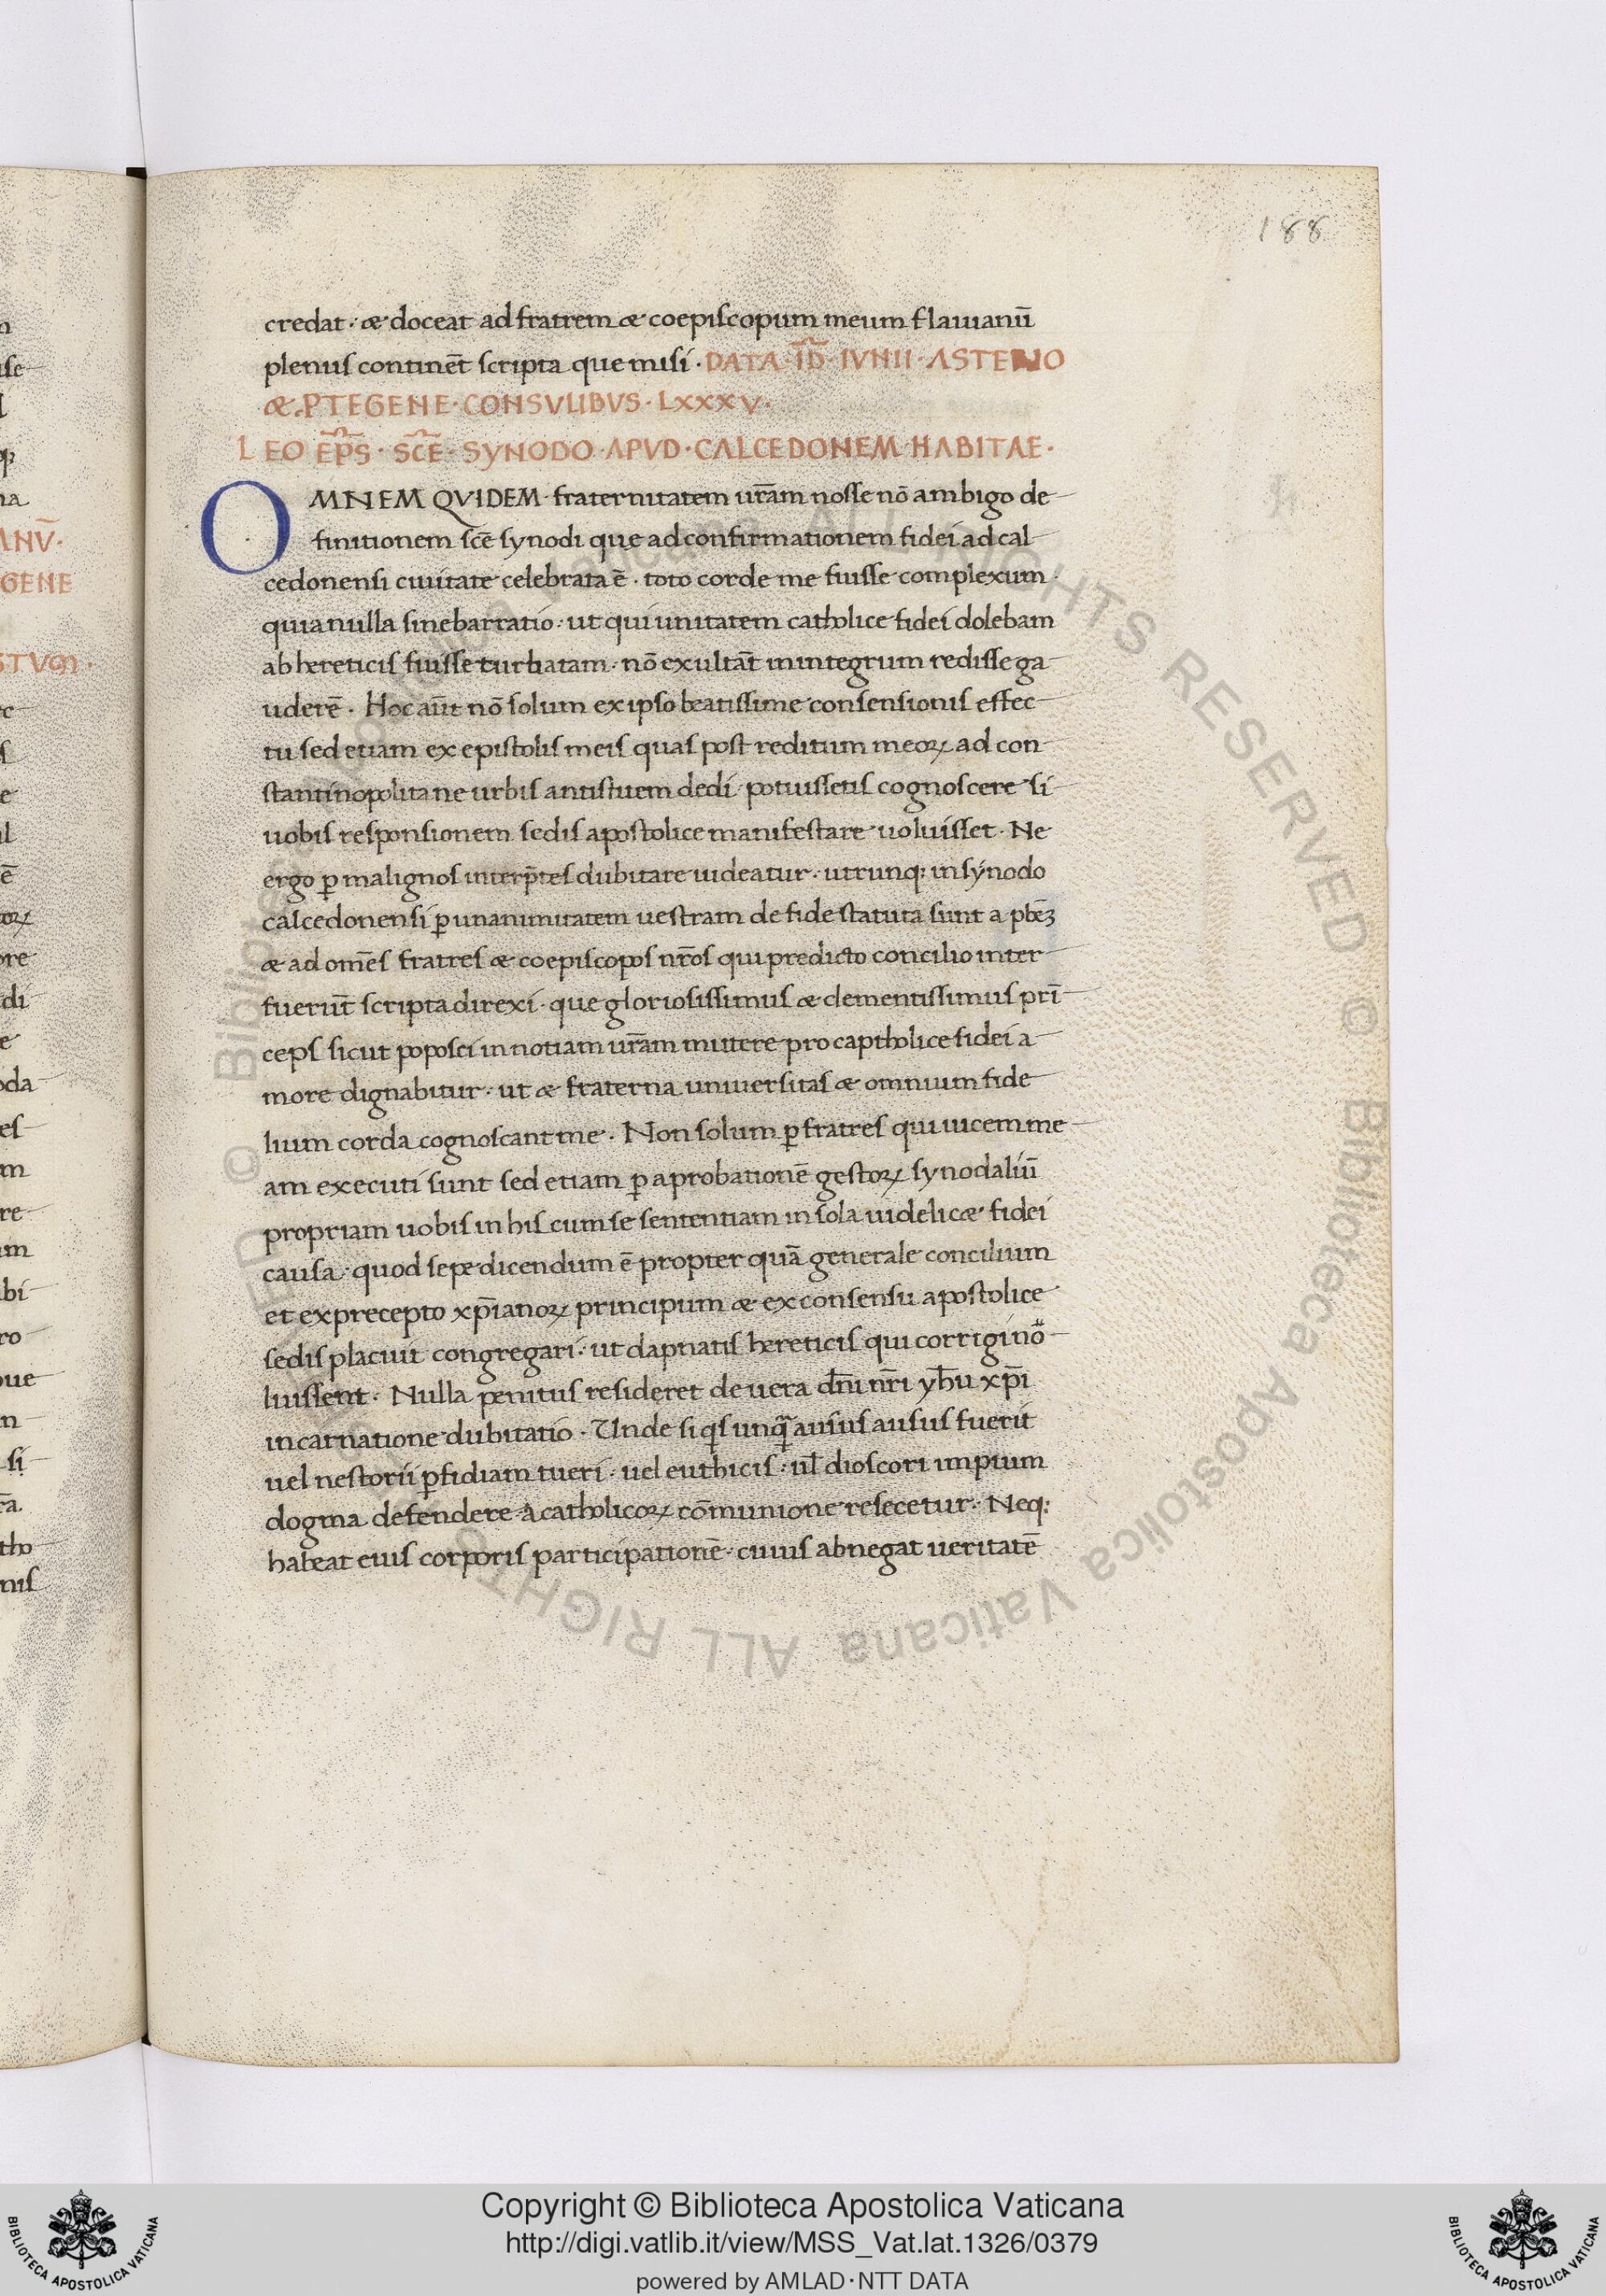 188
credat · æ doceat ad fratrem æ coepiscopum meum flauianū
plenus continēt scripta que misi · DATA · ID̄ · IVNII · ASTERIO
æ · PTEGENE · CONSVLIBVS · LXXXV ·
LEO EP̄S · SCĒ · SYNODO · APVD · CALCEDONEM HABITAE ·
OMNEM QVIDEM · fraternitatem ur̄am nosse nō ambigo de
finitionem scē synodi quę ad confirmationem fidei ad cal
cedonensi ciuitate celebrata ē · toto corde me fuisse complexum ·
quia nulla sinebat ratio · ut qui unitatem catholice fidei dolebam
ab hereticis fuisse turbatam · nō exultāt in integrum redisse ga
uderē · Hoc aūt nō solum ex ipso beatissime consensionis effec
tu sed etiam ex epistolis meis quas post reditum meoꝝ ad con
stantinopolitane urbis antistitem dedi · potuissetis cognoscere si
uobis responsionem sedis apostolice manifestare uoluisset · Ne
ergo ꝑ malignos interp̄tes dubitare uideatur · utrunq; in synodo
calcedonensi ꝑ unanimitatem uestram de fide statuta sunt a ꝓbēꝫ
æ ad om̄es fratres æ coepiscopos nr̄os qui predicto concilio inter
fuerūt scripta direxi · que gloriosissimus æ clementissimus prī
ceps sicut poposci in notiam ur̄am mittere pro captholice fidei a
more dignabitur · ut æ fraterna uniuersitas æ omnium fide
lium corda cognoscant me · Non solum ꝑ fratres qui uicem me
am executi sunt sed etiam ꝑ aprobationē gestoꝝ synodaliū
propriam uobis in his cum se sententiam in sola uidelicæ fidei
causa · quod sepe dicendum ē propter quā generale concilium
et ex precepto xp̄ianoꝝ principum æ ex consensu apostolice
sedis placuit congregari · ut dapnatis hereticis qui corrigi nō
luissent · Nulla penitus resideret de uera dn̄i nr̄i yh̄u xp̄i
incarnatione dubitatio · Unde si q̇s unq̄ aussus ausus fuerit
uel nestorii ꝑfidiam tueri · uel euthicis · ul̄ dioscori impium
dogma defendere a catholicoꝝ cōmunione resecetur · Neq;
habeat eius corporis participationē · cuius abnegat ueritatē
Copyright © Biblioteca Apostolica Vaticana
http://digi.vatlib.it/view/MSS_Vat.lat.1326/0379
powered by AMLAD·NTT DATA